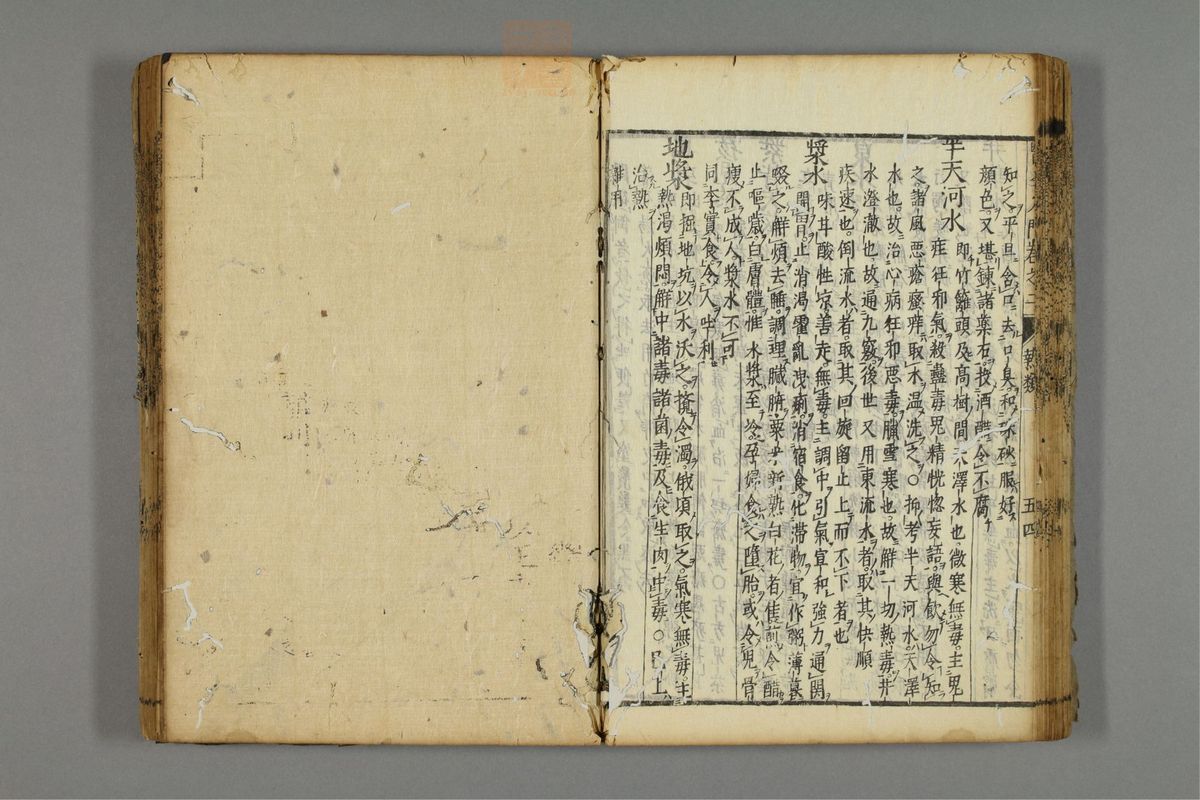 知之平旦含口去口臭和朱砂服好
顔色又堪錬諸藥石投酒醋令不腐
半天河水 即竹籬頭及高樹間天澤水也微寒無毒主鬼
疰狂邪氣殺蠱毒鬼精恍惚妄語與飲勿令知
之諸風惡瘡疥痒取水温洗之〇抑考半天河水天澤
水也故治心病狂邪惡毒臘雪寒也故解一切熱毒井
水澄澈也故通九竅後世又用東流水者取其快順
疾速也倒流水者取其回旋留止上而不下者也
漿水 味甘酸性凉善走無毒主調中引氣宣和強力通関
開胃止消渇霍亂洩痢消宿食化滞物宜作粥薄暮
啜之解煩去睡調理臓腑粟米新熟白花者佳煎令醋
止嘔歳白膚體惟水漿至冷孕婦食之墮胎或令兒骨
瘦不成人漿水不可
同李實食令人吐利
地漿 即掘地坑以水沃之攪令濁俄頃取之氣寒無毒主
熱渇煩悶解中諸毒諸菌毒及食生肉中毒〇已上
治熱
雜用
門卷之二
五四